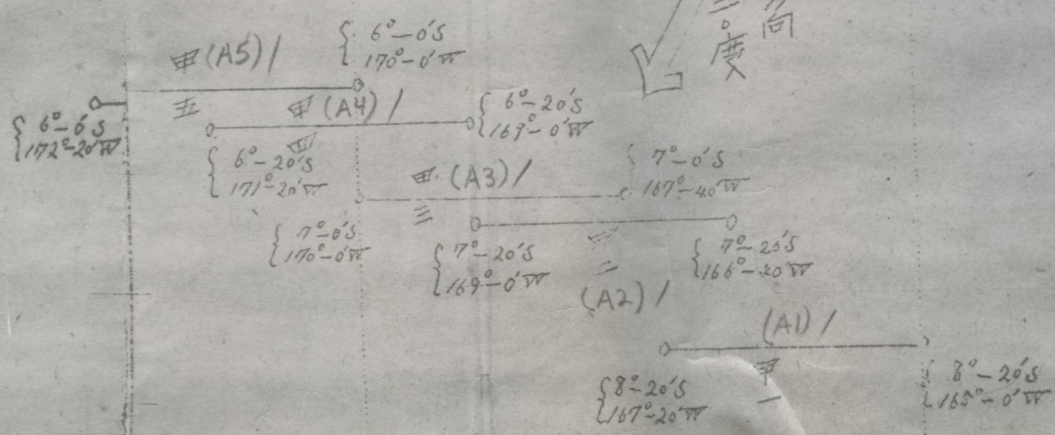 向
三〇度
甲(A5)/
五
6°-0'S
170°-0'W
6°-6'S
172°-20'W
甲(A4)/
四
6°-20'S
169°-0'W
6°-20'S
171°-20'W
甲(A3)/
三
7°-0'S
167°-40'W
7°-0'S
170°-0'W
7°-20'S
169°-0'W
二
(A2)/
7°-20'S
166°-40'W
(A1)/
甲
一
8°-20'S
167°-20'W
8°-20'S
165°-0'W